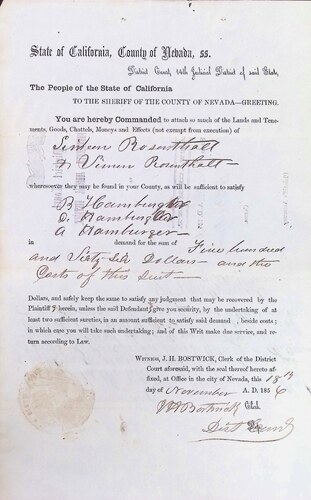 State of California, County of Nevada, ss.
District Court, 14th Judicial District of said State,
The People of the State of California
TO THE SHERIFF OF THE COUNTY OF NEVADA—GREETING.
You are hereby Commanded to attach so much of the Lands and Tene-
ments, Goods, Chattels, Moneys and Effects (not exempt from execution) of
Simeon Rosenthall
& Vimen Rosenthall
wheresoever they may be found in your County, as will be sufficient to satisfy
B Hamburgher
D. Hamburgher
A Hamburger
in demand for the sum of Five hundred
and Sixty-Six Dollars — and the
Costs of this Suit —
Dollars, and safely keep the same to satisfy any judgment that may be recovered by the
Plaintiff herein, unless the said Defendant give you security, by the undertaking of at
least two sufficient sureties, in an amount sufficient to satisfy said demand, beside costs;
in which case you will take such undertaking; and of this Writ make due service, and re-
turn according to Law.
WITNESS, J. H. BOSTWICK, Clerk of the District
Court aforesaid, with the seal thereof hereto af-
fixed, at Office in the city of Nevada, this 18th
day of November A. D. 1856
Bostwick Clerk.
Dist Court